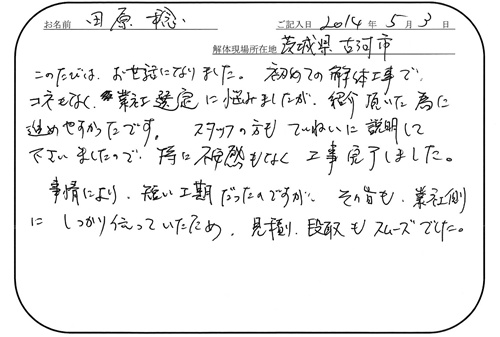 お名前 田原 稔 ご記入日 2014 年 5 月 3 日
解体現場所在地 茨城県古河市
このたびは、お世話になりました。初めての解体工事で、
コネもなく、業社選定に悩みましたが、紹介頂いた為に
進めやすかったです。スタッフの方もていねいに説明して
下さいましたので、特に不満もなく工事完了しました。
事情により、短い工期だったのですが、その旨も、業社側
に しっかり伝っていたため、見積り、段取もスムーズでした。